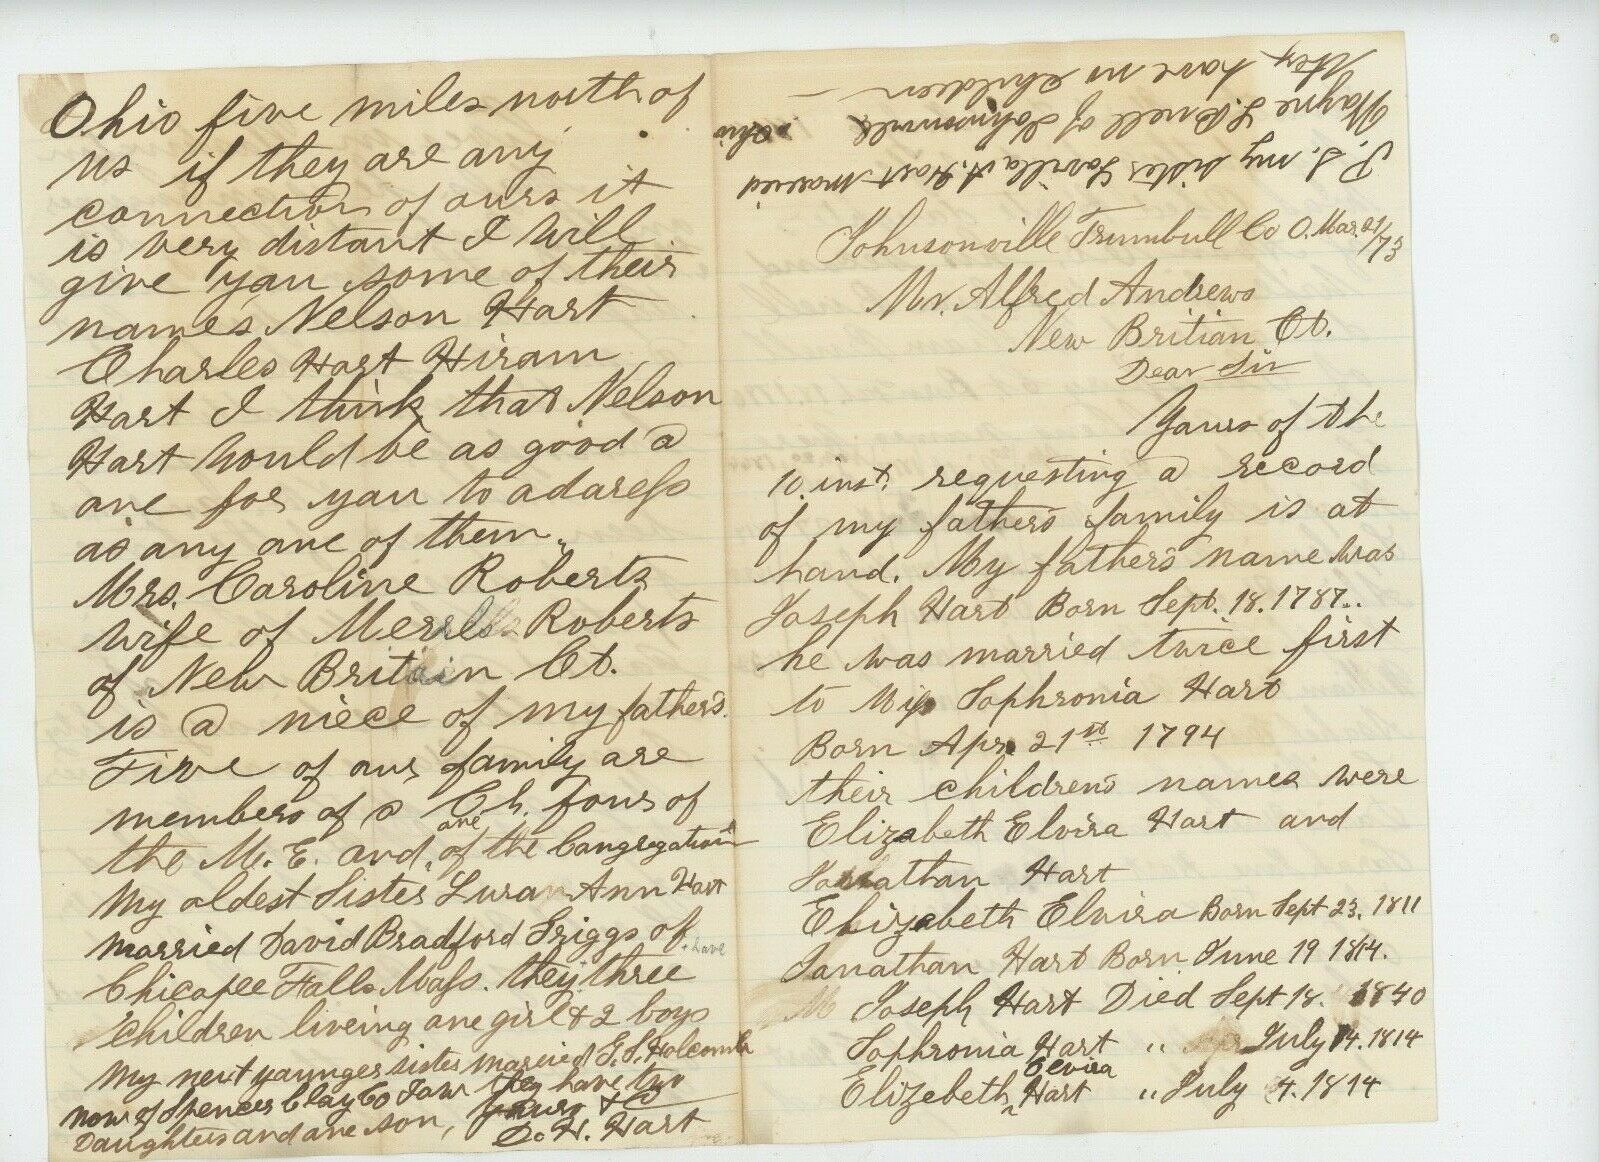 Johnsonville Trumbull Co O. Mar. 21/73
Mr. Alfred Andrews
New Britian Ct.
Dear Sir
Yours of the
10 inst. requesting a record
of my fathers family is at
hand. My father's name was
Joseph Hart Born Sept. 18. 1787..
he was married twice first
to Miss Sophronia Hart
Born Apr. 21st 1794
their children's names were
Elizabeth Elvira Hart and
Jonathan Hart
Elizabeth Elvira Born Sept 23. 1811
Jonathan Hart Born June 19 1814.
Joseph Hart Died Sept 18. 1840
Sophronia Hart " July 14. 1814
Elizabeth Elvira Hart " July 4. 1814
Ohio five miles north of
us if they are any
connection of ours it
is very distant I will
give you some of their
names Nelson Hart
Charles Hart Hiram
Hart I think that Nelson
Hart would be as good a
one for you to adaress
as any one of them.
Mrs. Caroline Roberts
wife of Merrells Roberts
of New Britain Ct.
is a niece of my fathers.
Five of our family are
members of a Ch. four of
the M. E. and one of the Congregation
My oldest Sister Luran Ann Hart
married David Bradford Griggs of
Chicopee Falls Mass. they have three
children liveing one girl & 2 boys
My next younger sister married G. S. Holcomb
now of Spencer Clay Co Iow they have two
Daughters and one son, Yours &c
D. H. Hart
P. S. my sister A. Hart married
Wayne of Johnsonville Ohio
they have no children